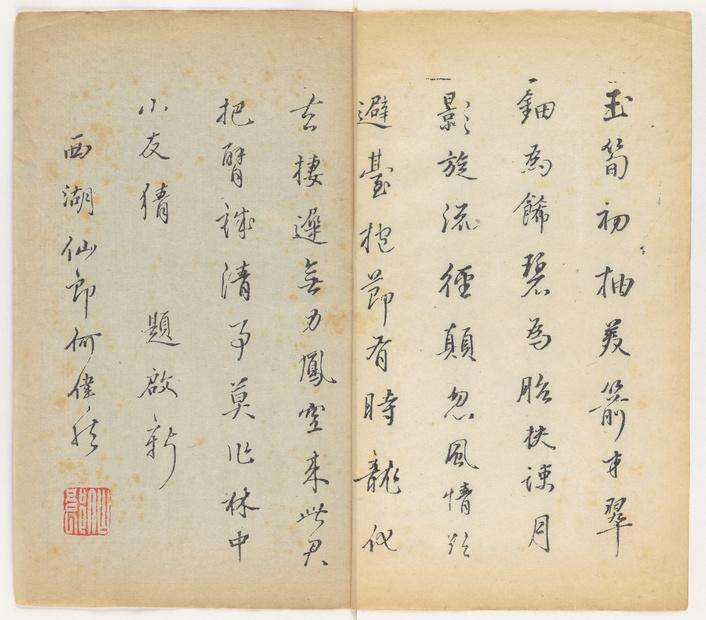 玉筍初抽美箭才翠
鈿為餙碧為胎扶疎月
影旋流徑顛忽風情欲
避臺抱節有時龍化
去棲遲無力鳳空來此君
把臂誠清事莫作林中
小友猜 題啟新
西湖仙郎何偉然